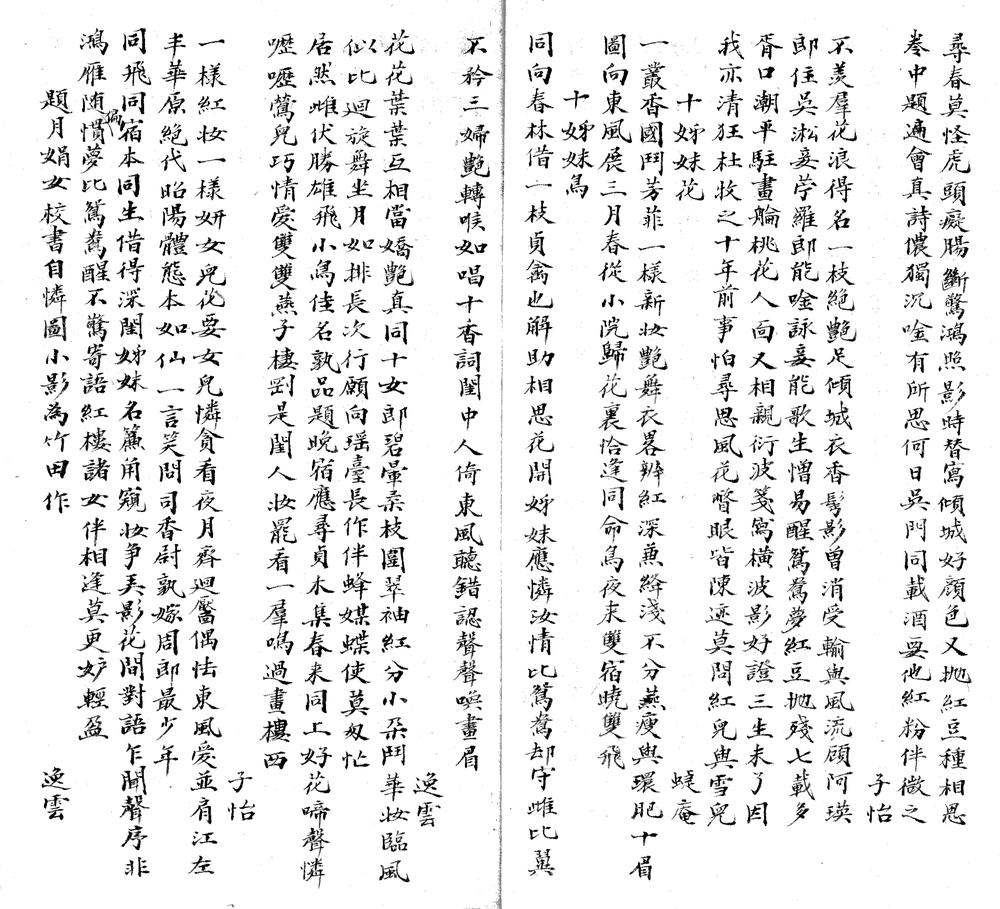 尋春莫怪虎頭癡腸斷驚鴻照影時替寫傾城好顏色又拋紅豆種相思
卷中題遍會真詩儂獨沉唫有所思何日吳門同載酒要他紅粉伴微之
子怡
不羨羣花浪得名一枝絕艷足傾城衣香鬓影曽消受輸與風流顧阿瑛
郎住吳淞妾苧羅郎能唫詠妾能歌生憎易醒鴛鴦夢紅豆拋殘七載多
胥口潮平駐畫艙桃花人面又相親衍波箋寫横波影好證三生未了因
我亦清狂杜牧之十年前事怕尋思風花瞥眼皆陳迹莫問紅兒與雪兒
十姊妹花
蜨庵
一叢香國鬥芳菲一樣新妝艷舞衣畧辨紅深兼絳淺不分燕瘦與環肥十眉
圖向東風展三月春從小院歸花裏恰逢同命鳥夜來雙宿曉雙飛
十姊妹鳥
同向春林借一枝貞禽也解助相思花開姊妹應憐汝情比鴛鴦却守雌比翼
不矜三婦艷轉喉如唱十香詞閨中人倚東風聽錯認聲聲喚畫眉
逸雲
花花葉葉互相當嬌艷真同十女郎碧暈柔枝圍翠袖紅分小朶鬥華妝臨風
似比迴旋舞坐月如排長次行願向瑶臺長作伴蜂媒蝶使莫匆忙
居然雌伏勝雄飛小鳥佳名孰品題晚宿應尋貞木集春来同上好花啼聲憐
嚦嚦鶯兒巧情愛雙雙燕子棲剛是閨人妝罷看一羣鳴過畫樓西
子怡
一樣紅妝一樣妍女兒花要女兒憐貪看夜月齊迴靨偶怯東風愛並肩江左
丰華原絕代昭陽體態本如仙一言笑問司香尉孰嫁周郎最少年
同飛同宿本同生借得深閨姊妹名簾角窺妝爭弄影花間對語乍聞聲序非
鴻雁随偏慣夢比鴛鴦醒不驚寄語紅樓諸女伴相逢莫更妒輕盈
逸雲
題月娟女校書自憐圖小影為竹田作